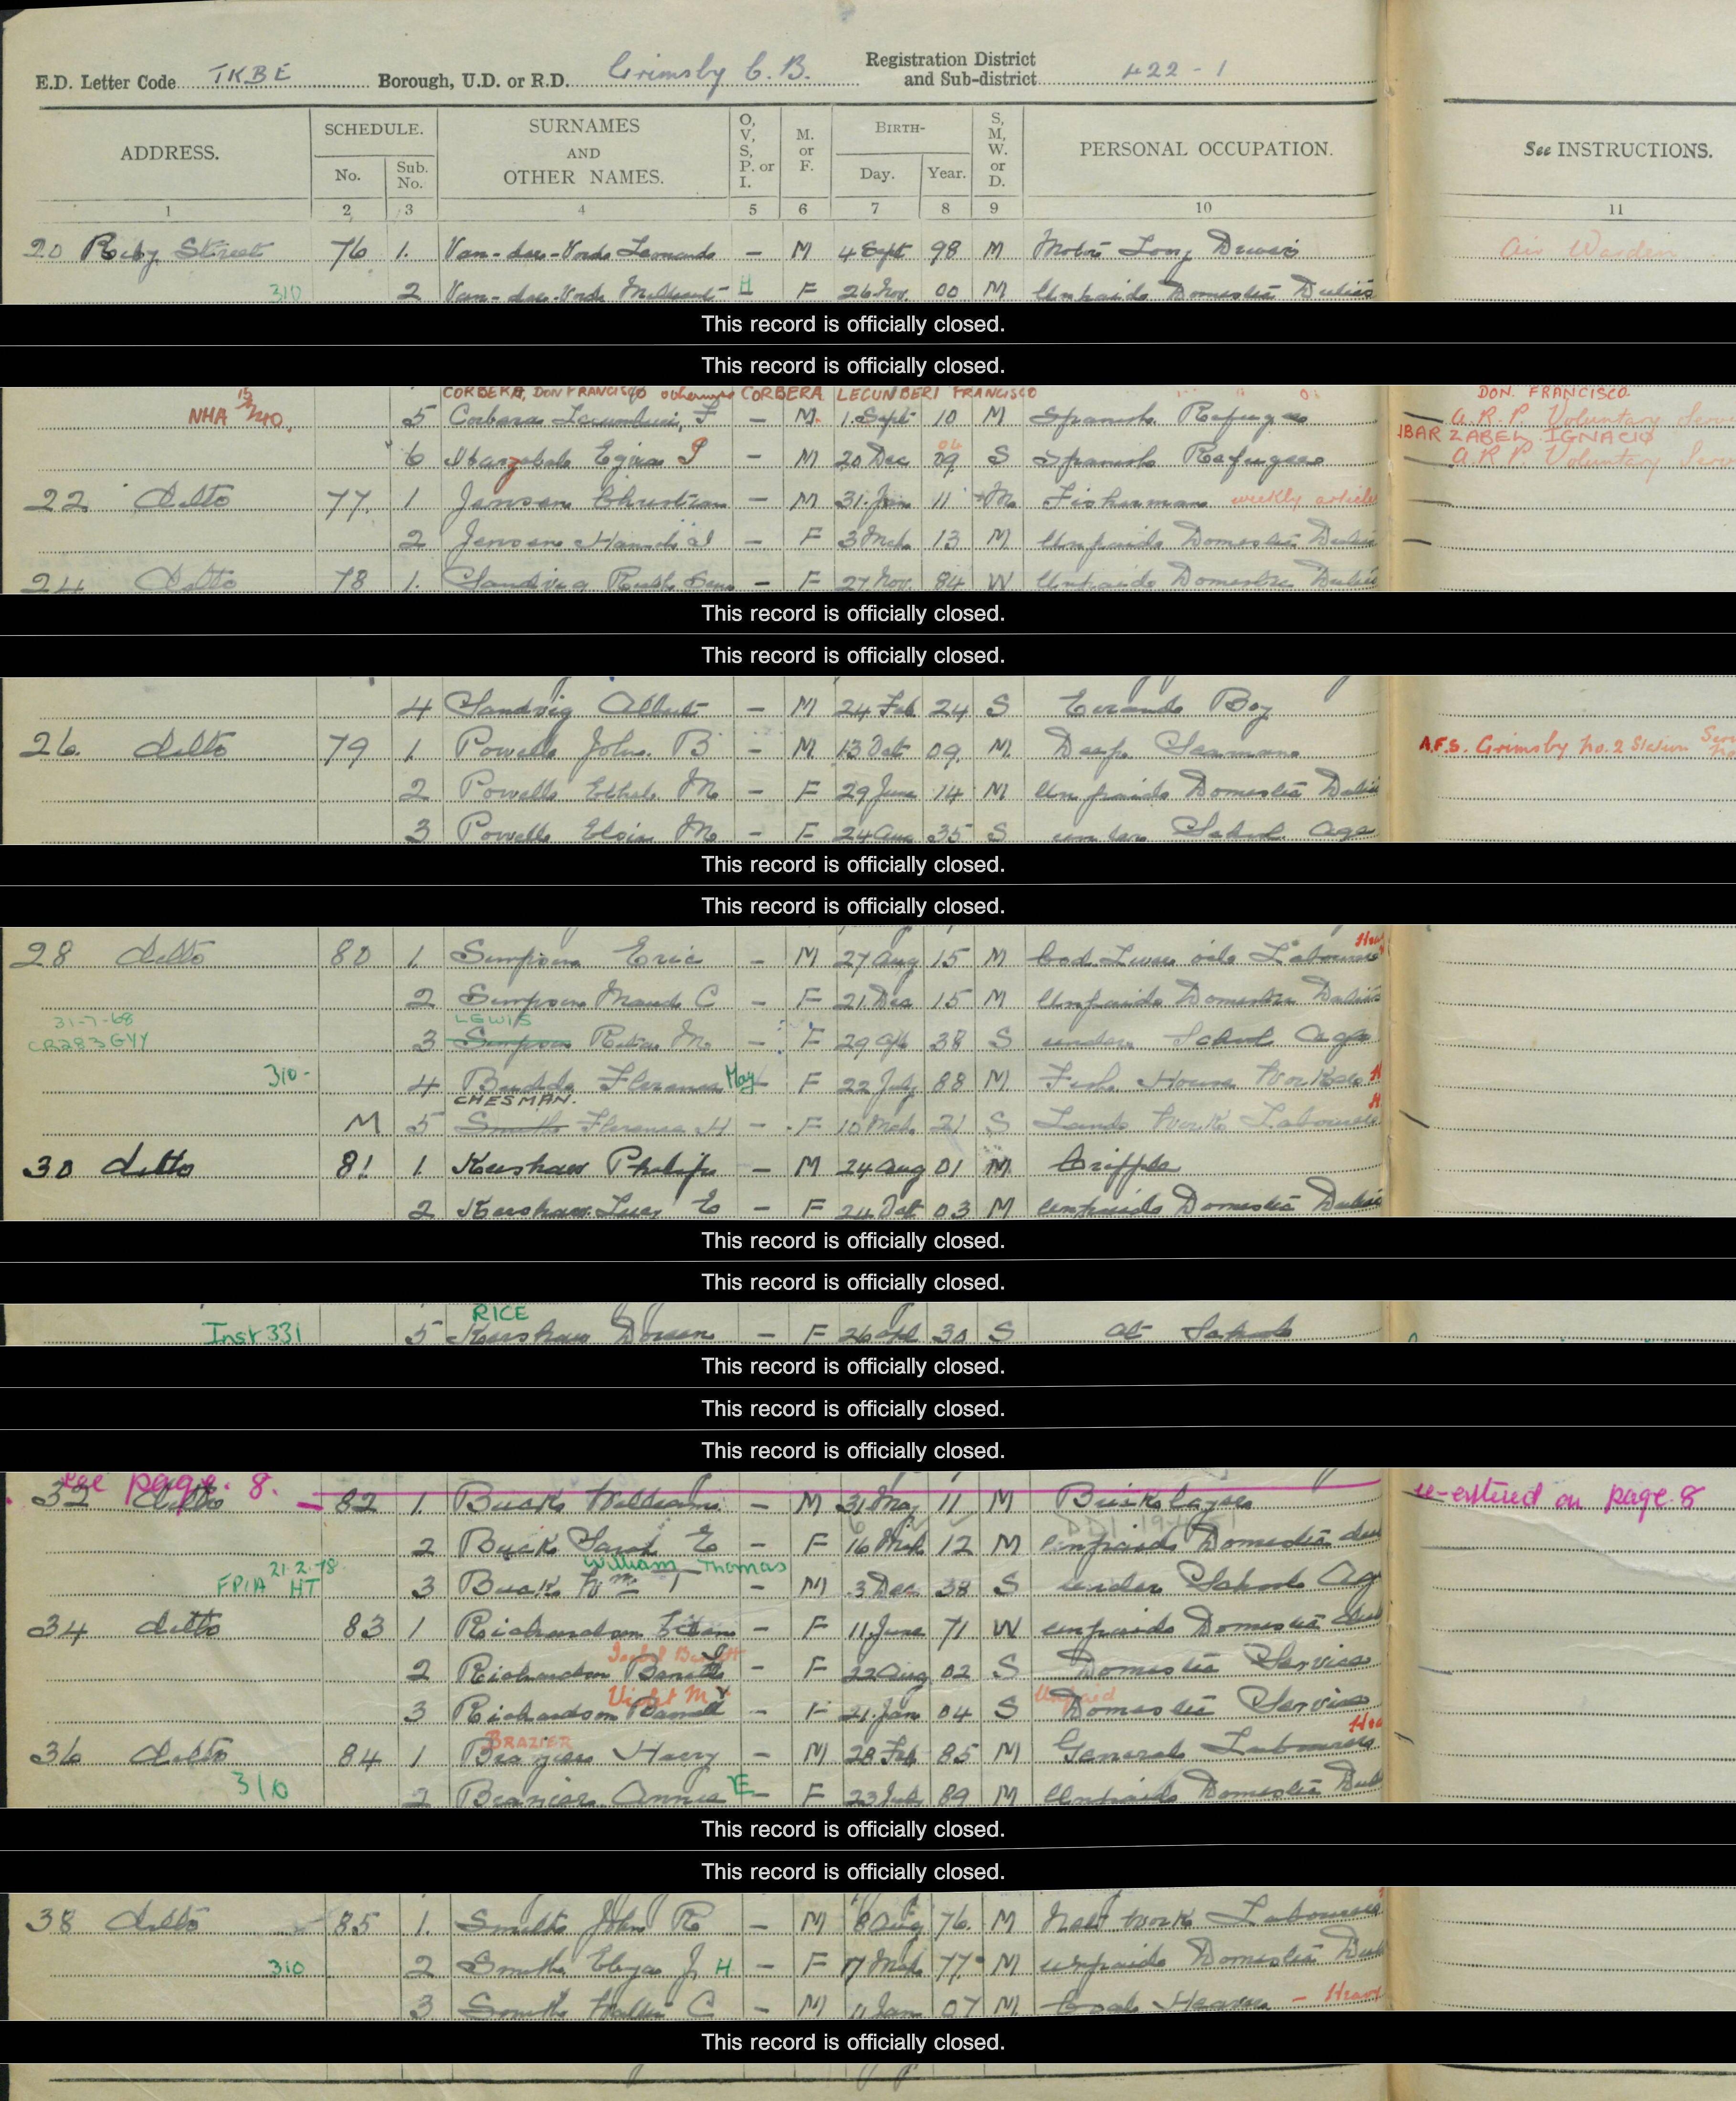 E.D. Letter Code TKBE Borough, U.D. or R.D. Grimsby C.B. Registration District and Sub-district 422-1
ADDRESS. SCHEDULE. No. Sub. No. SURNAMES AND OTHER NAMES. O, V, S, P. or I. M. or F. BIRTH- Day. Year. S, M, W. or D. PERSONAL OCCUPATION. See INSTRUCTIONS.
1 2 3 4 5 6 7 8 9 10 11
20 Street 76 1. Van-der- - M 4 Sept 98 M Driver Air Warden
310 2 Van-der- H F 26 Nov. 00 M Unpaid Domestic Duties
This record is officially closed.
This record is officially closed.
CORBERA, DON FRANCISCO otherwise CORBERA LECUNBERI FRANCISCO DON. FRANCISCO.
NHA 5 Corbera F - M. 1. Sept 10 M Spanish Refugee A.R.P. Voluntary
IBAR ZABEL, IGNACIO
6 - M 20 Dec 09 S Spanish Refugee A.R.P. Voluntary
22 ditto 77. 1 Jensen Christian - M 31. Jan 11 M Fisherman weekly article
2 Jensen - F 3 Mch. 13 M Unpaid Domestic Duties
24 ditto 78 1. Sandvig - F 27 Nov. 84 W Unpaid Domestic Duties
This record is officially closed.
This record is officially closed.
4 Sandvig Albert - M 24 Feb 24 S Errand Boy
26. ditto 79 1 Powell John. B - M 13 Oct 09. M. Deep Seaman A.F.S. Grimsby No. 2 Station
2 Powell Ethel M - F 29 June 14 M Unpaid Domestic Duties
3 Powell Elsie M - F 24 Aug 35 S under School age
This record is officially closed.
This record is officially closed.
28 ditto 80 1. Simpson Eric - M 27 Aug 15 M Cod Liver oil Labourer
2 Simpson Maud C - F 21 Dec 15 M Unpaid Domestic Duties
31-7-68 LEWIS
CR283 GYY 3 Simpson M. - F 29 38 S under School age
310- 4 Florence May - F 22 July 88 M. Fish House Worker H
CHESMAN.
M 5 Smith Florence H - F 10 Mch. 21 S Land Work Labourer H
30 ditto 81 1. Kershaw Philip - M 24 Aug 01 M. Cripple
2 Kershaw Lucy E - F 24 Oct 03 M Unpaid Domestic Duties
This record is officially closed.
This record is officially closed.
RICE
Inst 331 5 Kershaw Doreen - F 26 Apl 30 S at School
This record is officially closed.
This record is officially closed.
This record is officially closed.
See page. 8.
32 ditto 82 1. Buck William - M 31 May 11 M Bricklayer re-entered on page. 8
2 Buck Sarah E - F 16 Mch 12 M unpaid Domestic
21-2-78 William Thomas
FP/A HT 3 Buck Wm T - M 3 Dec 38 S under School Age
34 ditto 83 1 Richardson - F 11 June 71 W unpaid Domestic
2 Richardson - F 22 Aug 02 S Domestic Service
Violet M Unpaid
3 Richardson - F 21. Jan 04 S Domestic Service
BRAZIER
36 ditto 84 1 Harry - M 28 Feb 85 M General Labourer
310 2 Annie E - F 23 89 M Unpaid Domestic
This record is officially closed.
This record is officially closed.
38 ditto 85 1. Smith John R - M 8 Aug 76. M Labourer
310 2 Smith J. H - F 17 Mch. 77 M unpaid Domestic
3 Smith Walter C - M 11 Jan 07 M. Coal Heaver - Heavy
This record is officially closed.